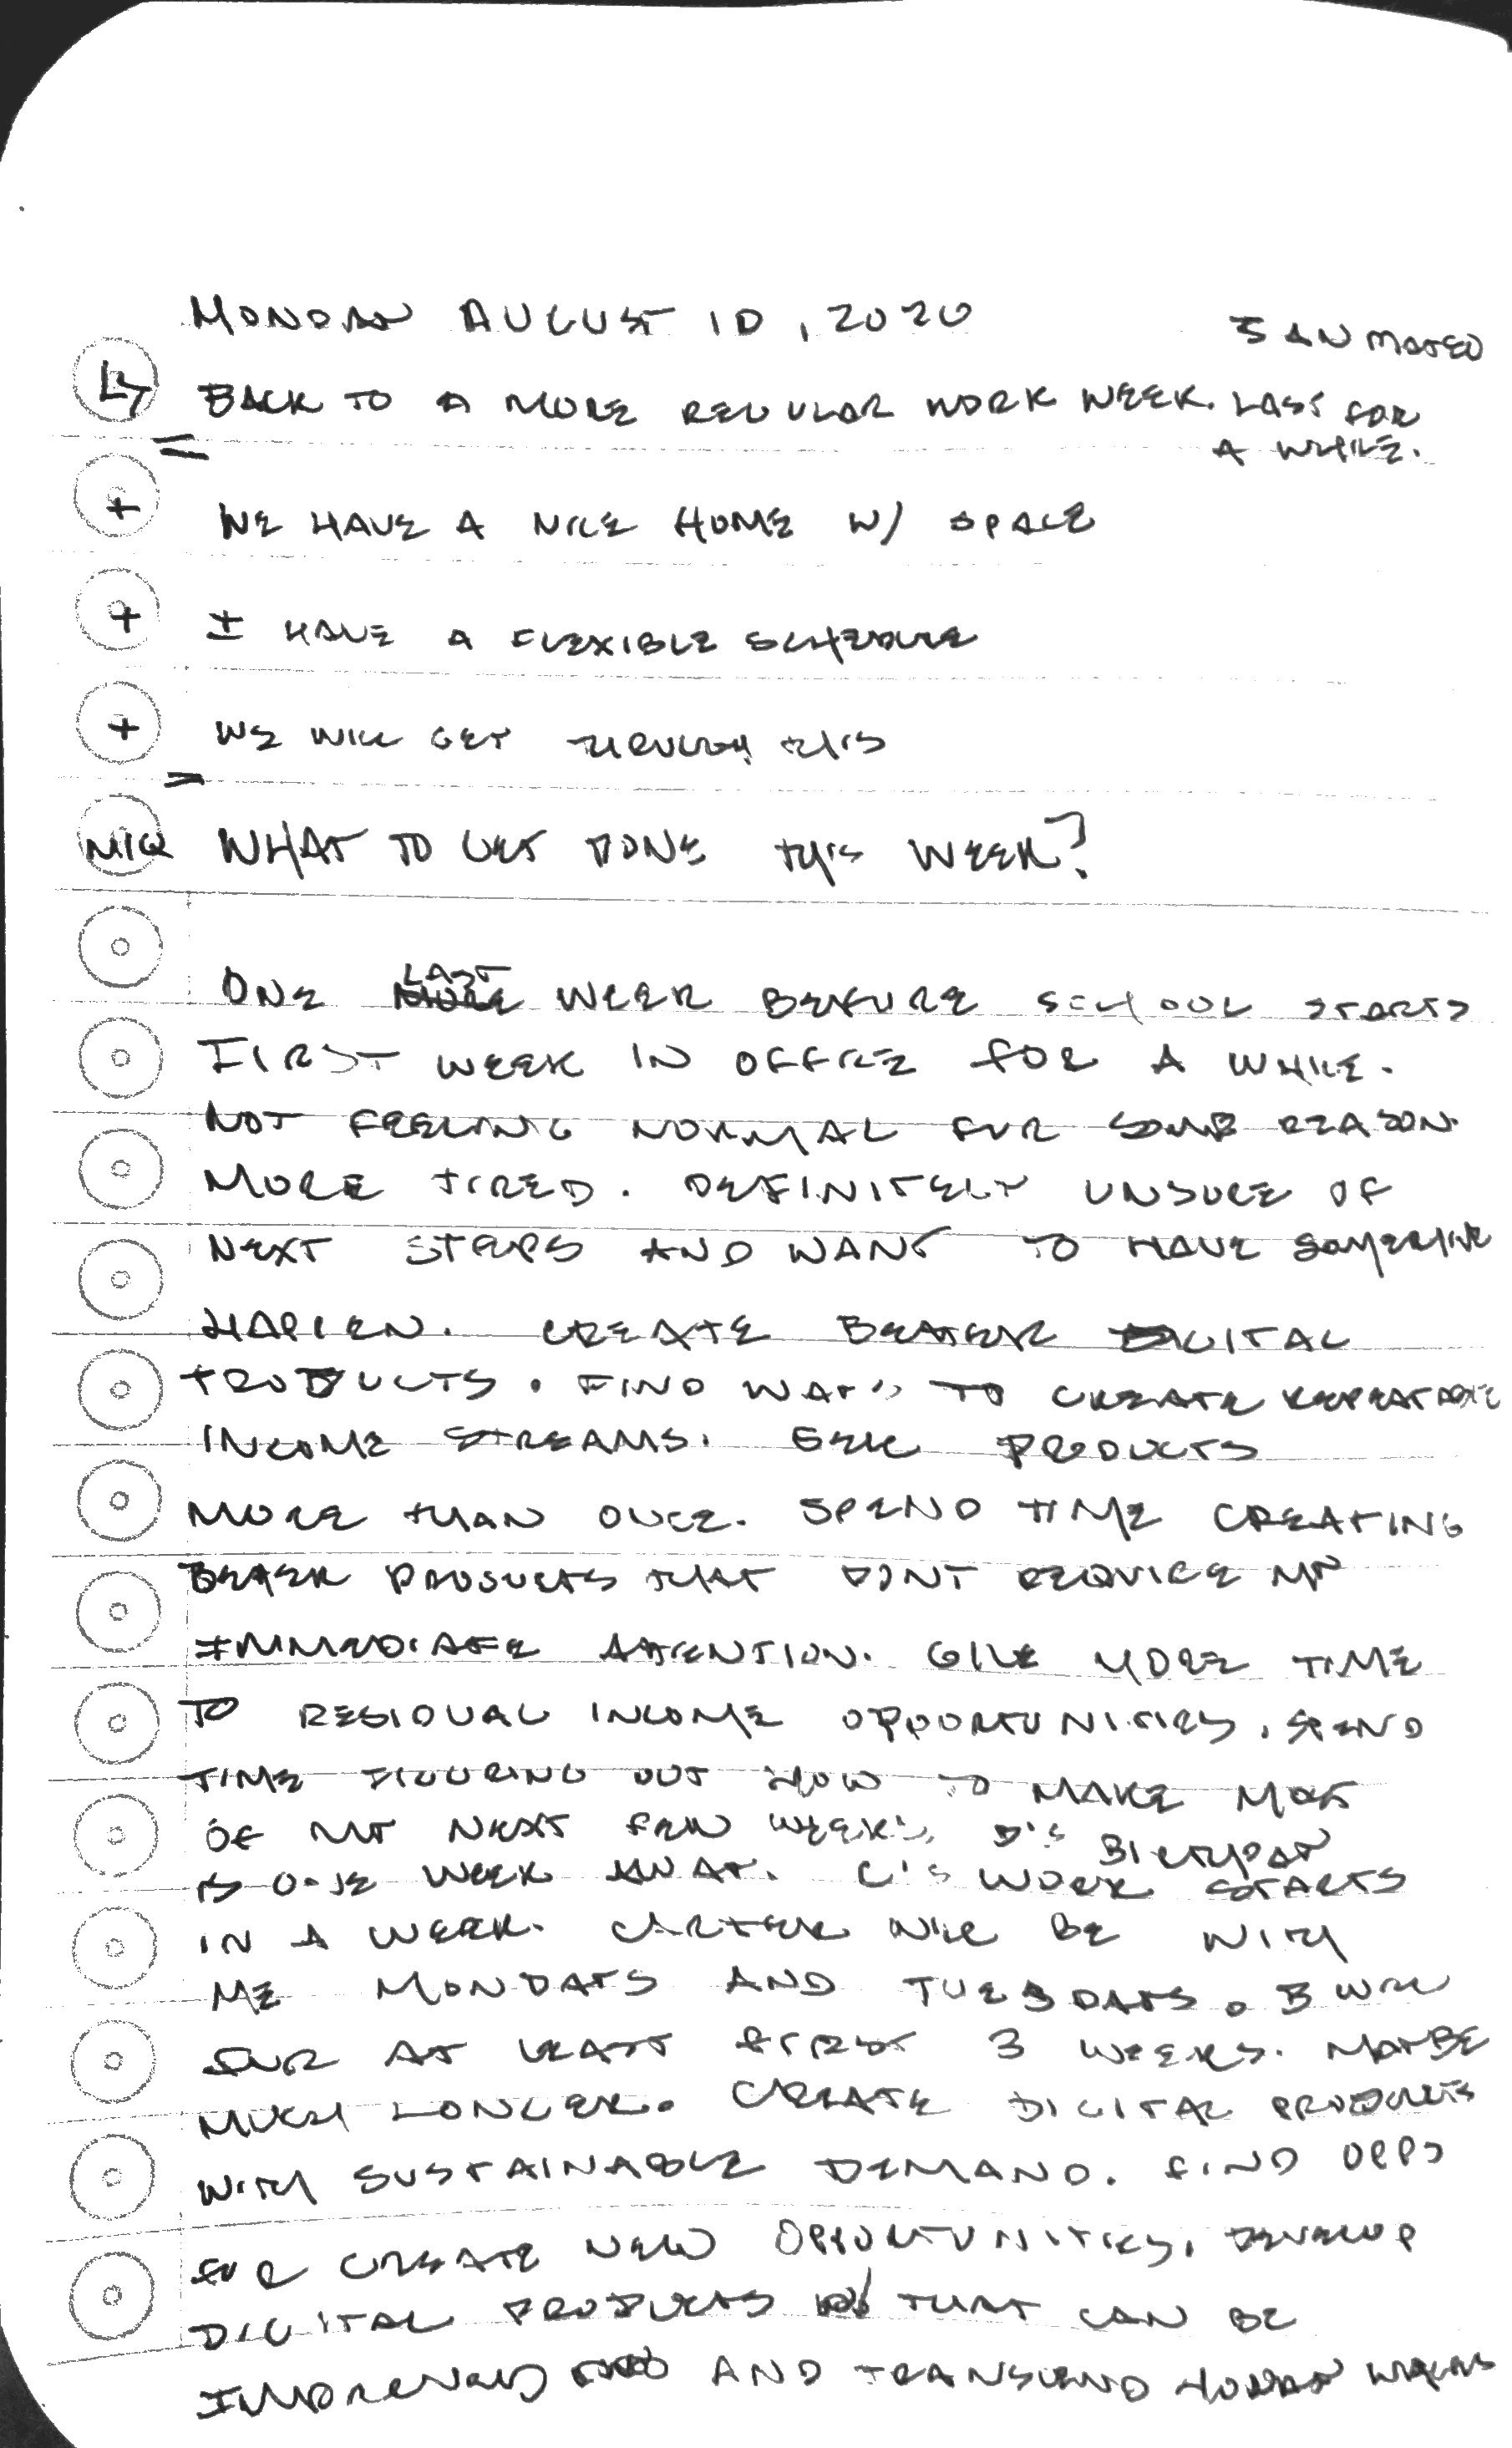 MONDAY AUGUST 10, 2020
SAN MATEO
BACK TO A MORE REGULAR WORK WEEK. LAST FOR
A WHILE.
+ WE HAVE A NICE HOME W/ SPACE
+ I HAVE A FLEXIBLE SCHEDULE
+ WE WILL GET THROUGH THIS
MIQ WHAT TO GET DONE THIS WEEK?
LAST
ONE MORE WEEK BEFORE SCHOOL STARTS
FIRST WEEK IN OFFICE FOR A WHILE.
NOT FEELING NORMAL FOR SOME REASON.
MORE TIRED. DEFINITELY UNSURE OF
NEXT STEPS AND WANT TO HAVE SOMETHING
HAPPEN. CREATE BETTER DIGITAL
PRODUCTS. FIND WAYS TO CREATE REPEATABLE
INCOME STREAMS. SELL PRODUCTS
MORE THAN ONCE. SPEND TIME CREATING
BETTER PRODUCTS THAT DONT REQUIRE MY
IMMEDIATE ATTENTION. GIVE MORE TIME
TO RESIDUAL INCOME OPPORTUNITIES. SPEND
TIME FIGURING OUT HOW TO MAKE MOST
OF MY NEXT FEW WEEKS. D'S BIRTHDAY
IS ONE WEEK AWAY. C'S WORK STARTS
IN A WEEK. CARTER WILL BE WITH
ME MONDAYS AND TUESDAYS. B WILL
FOR AT LEAST FIRST 3 WEEKS. MAYBE
MUCH LONGER. CREATE DIGITAL PRODUCTS
WITH SUSTAINABLE DEMAND. FIND OPPS
FOR CREATE NEW OPPORTUNITIES. DEVELOP
DIGITAL PRODUCTS THAT CAN BE
IMPROVED AND TRANSCEND